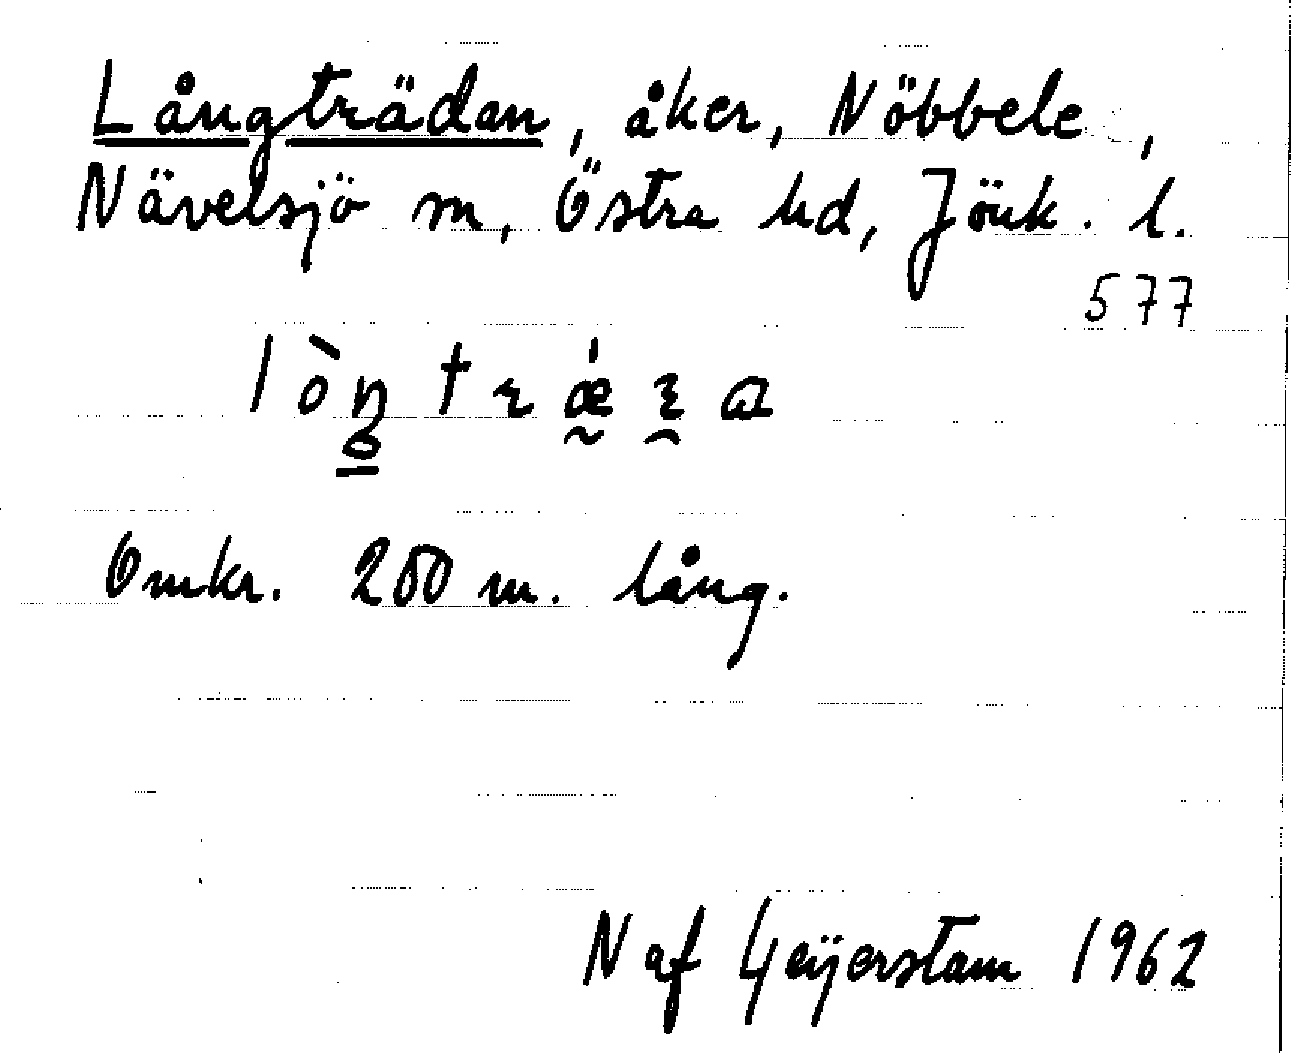 Långträdan, åker, Nöbbele,
Nävelsjö sn, Östra hd, Jönk. l.
577
Omkr. 200 m. lång.
N af Geijerstam 1962